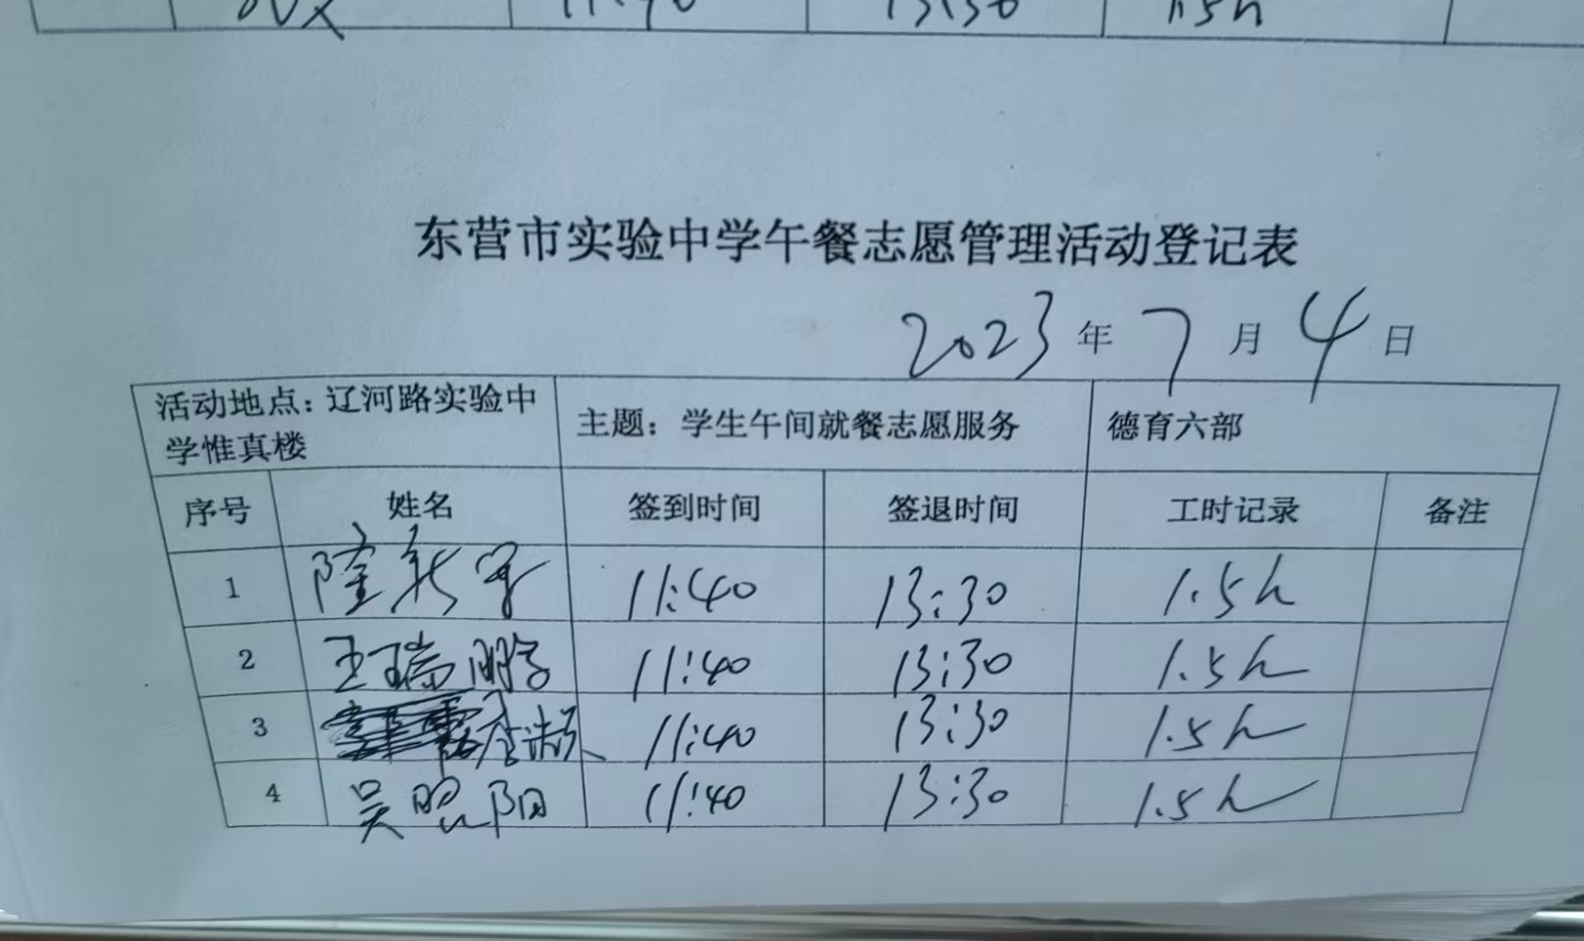 11:40 13:30 1.5h
东营市实验中学午餐志愿管理活动登记表
2023年7月4日
活动地点：辽河路实验中
学惟真楼
主题：学生午间就餐志愿服务
德育六部
序号 姓名 签到时间 签退时间 工时记录 备注
1 隆新 11:40 13:30 1.5h
2 王瑞鹏 11:40 13:30 1.5h
3 11:40 13:30 1.5h
4 吴昭阳 11:40 13:30 1.5h